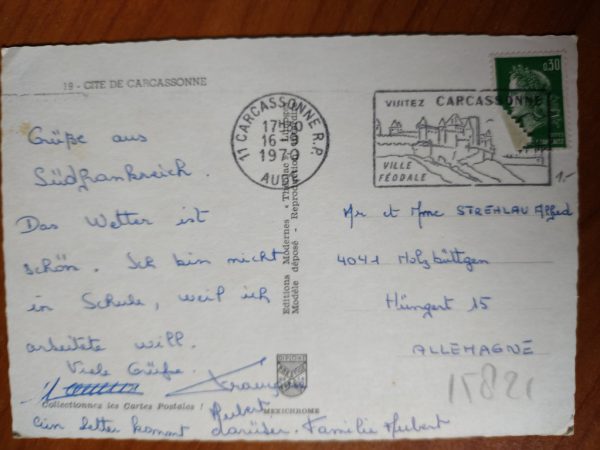 19 - CITE DE CARCASSONNE
Grüße aus
Südfrankreich.
Das Wetter ist
schön. Ich bin nicht
in Schule, weil ich
arbeitete will.
Viele Grüße.
Hubert
Collectionnez les Cartes Postales !
MEXICHROME
Ein Setter kommt darüser. Familie Hubert
Editions Modernes
Modèle déposé - Reproduction
11 CARCASSONNE R.P.
17H30
16-9
1970
AUDE
VISITEZ CARCASSONNE
VILLE
FÉODALE
0,30
1.-
Mr et Mme STREHLAU Alfred
4041 Holzbüttgen
Hüngert 15
ALLEMAGNE